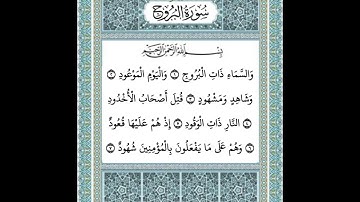 سُورَةُ الْبُرُوجِ
بِسْمِ اللَّهِ الرَّحْمَٰنِ الرَّحِيمِ
وَالسَّمَاءِ ذَاتِ الْبُرُوجِ ۝ وَالْيَوْمِ الْمَوْعُودِ ۝
وَشَاهِدٍ وَمَشْهُودٍ ۝ قُتِلَ أَصْحَابُ الْأُخْدُودِ
۝ النَّارِ ذَاتِ الْوَقُودِ ۝ إِذْ هُمْ عَلَيْهَا قُعُودٌ
۝ وَهُمْ عَلَى مَا يَفْعَلُونَ بِالْمُؤْمِنِينَ شُهُودٌ ۝